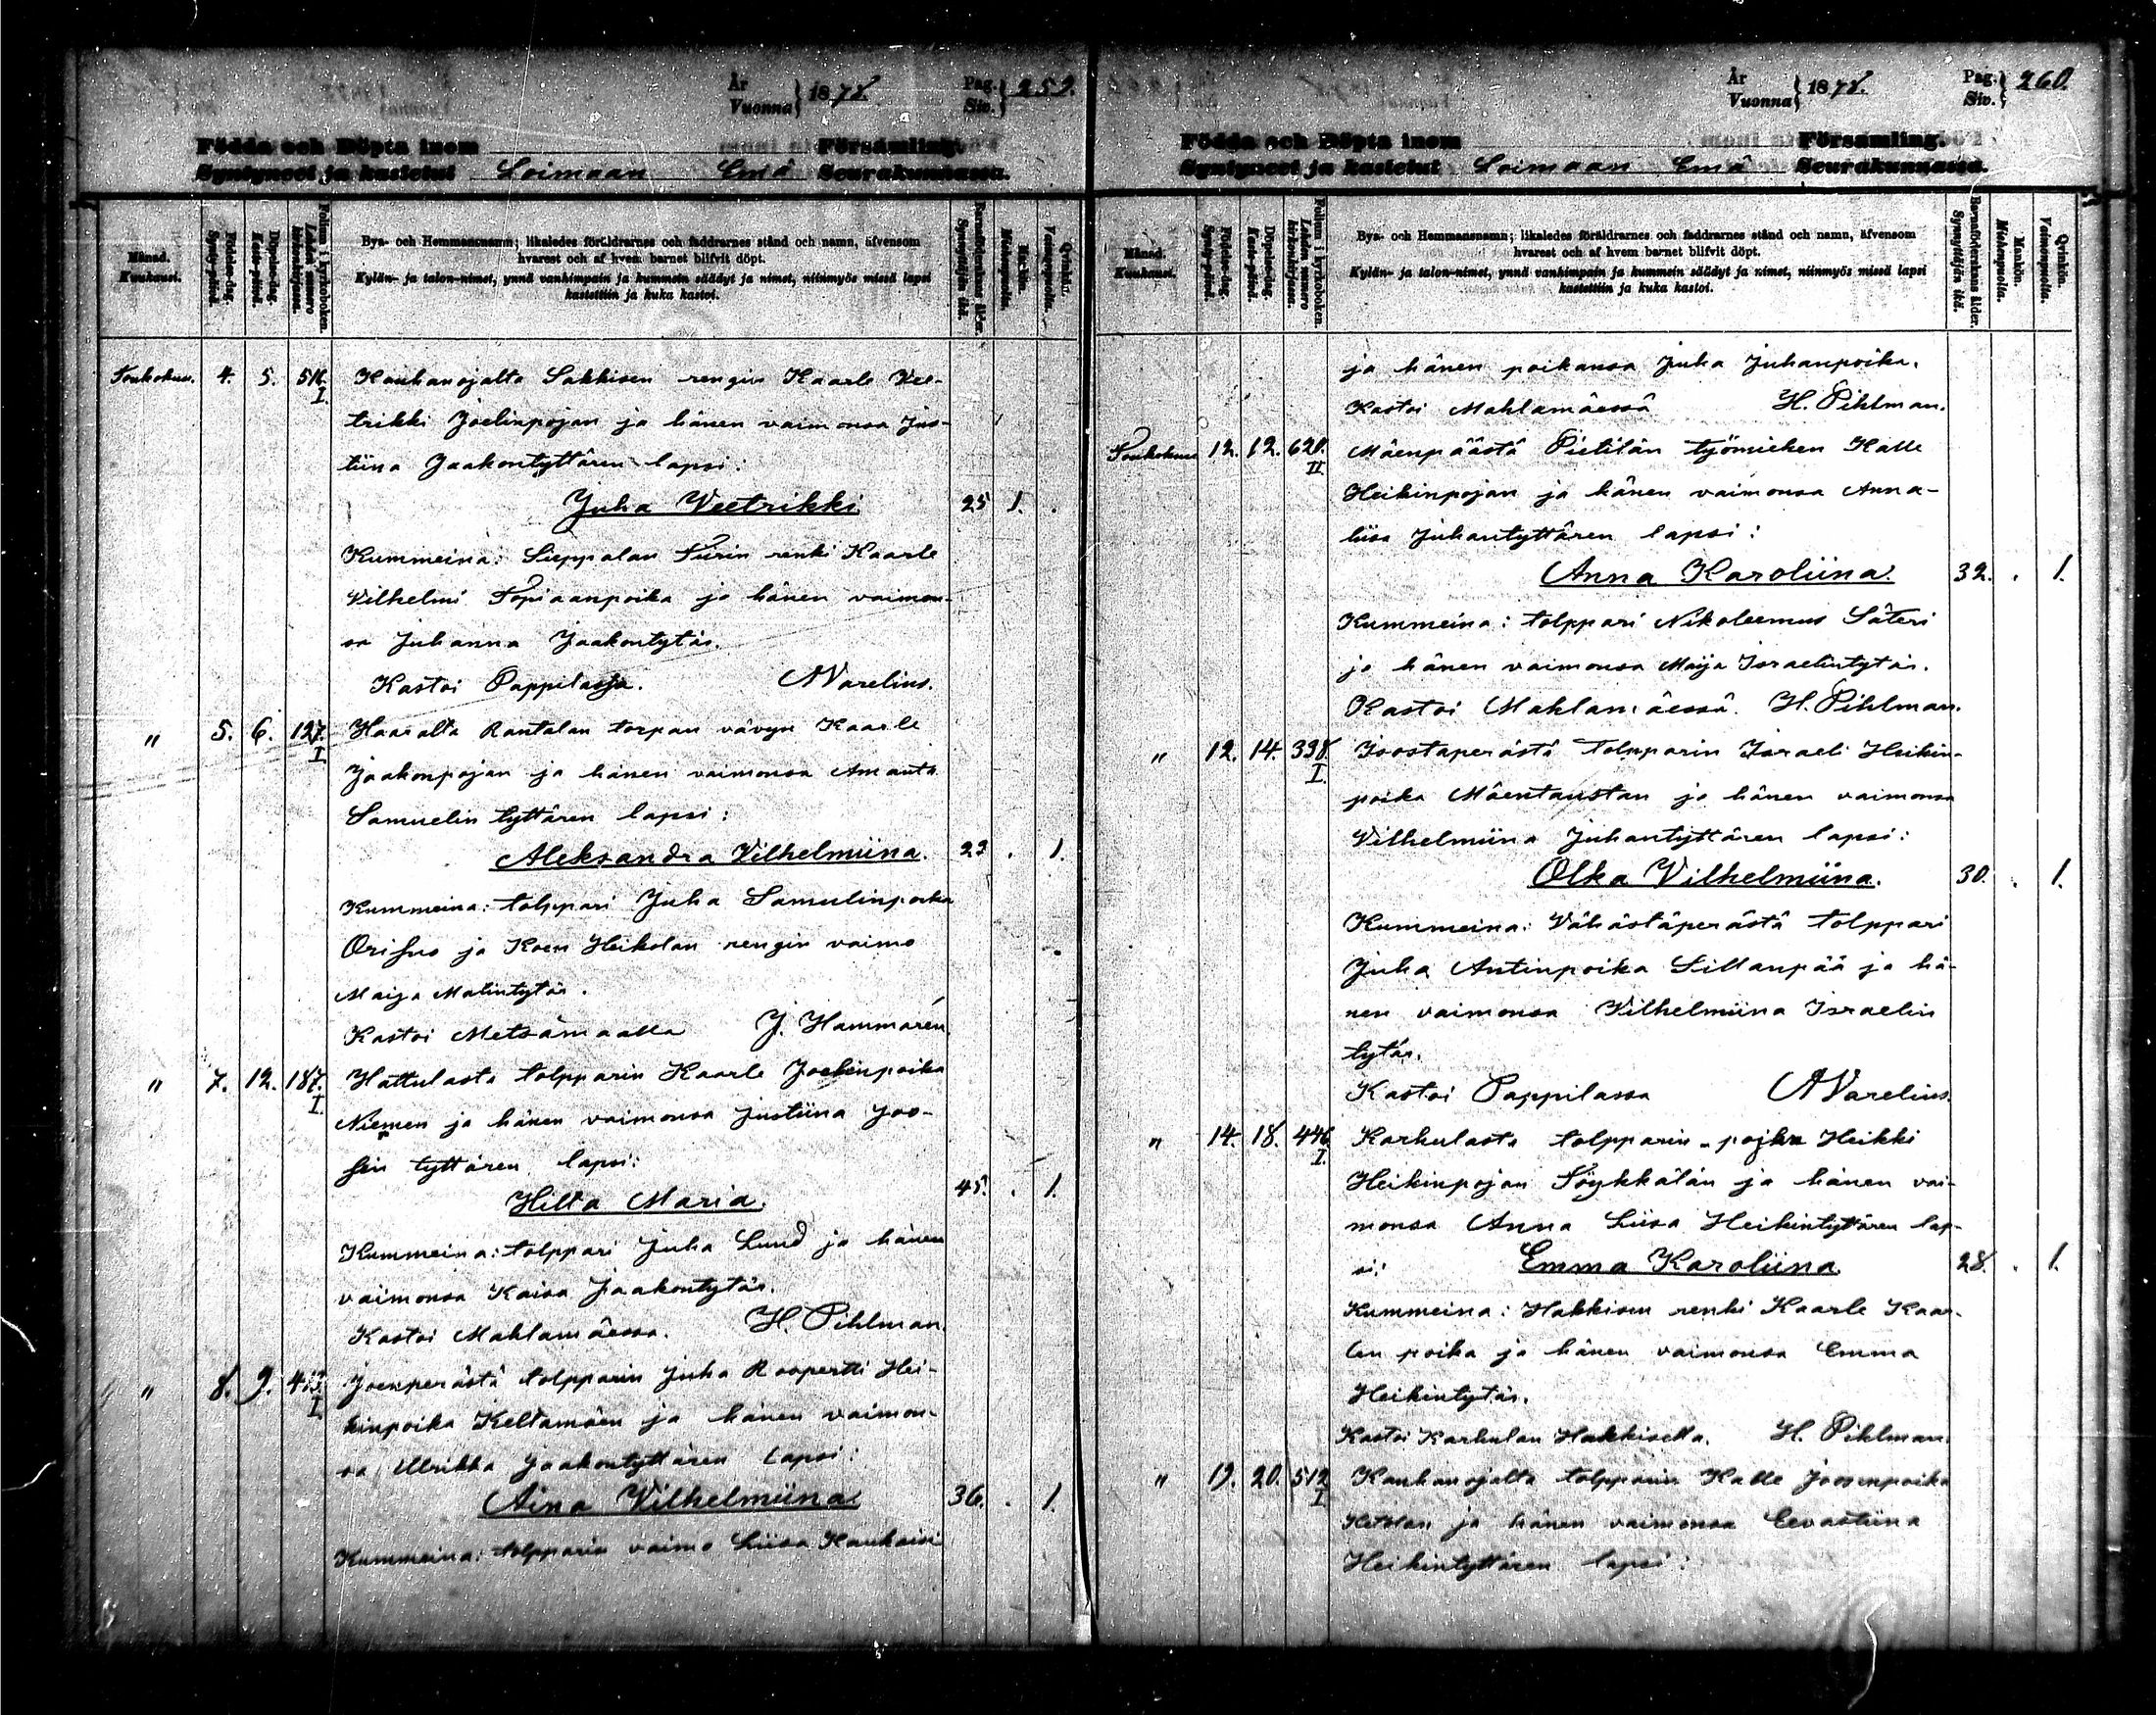 År
Vuonna } 1878.
Pag.
Siv. } 259.
Födda och Döpta inom Församling.
Syntyneet ja kastetut Loimaan Emä Seurakunnassa.
Månad.
Kuukausi.
Födelse-dag.
Synty-päivä.
Döpelse-dag.
Kaste-päivä.
Folium i kyrkoboken.
Lehden numero kirkonkirjassa.
Bya- och Hemmansnamn; likaledes föräldrarnes och faddrarnes stånd och namn, äfvensom
hvarest och af hvem barnet blifvit döpt.
Kylän- ja talon-nimet, ynnä vanhimpain ja kummein säädyt ja nimet, niinmyös missä lapsi
kastettiin ja kuka kastoi.
Barnföderskans ålder.
Synnyttäjän ikä.
Mankön.
Miehenpuolia.
Qvinkön.
Vaimonpuolia.
Toukokuu. 4. 5. 516. I. Kauhanojalta Sakkisen rengin Kaarle Vee-
trikki Joelinpojan ja hänen vaimonsa Jus-
tiina Jaakontyttären lapsi:
Juha Veetrikki 25 1. .
Kummeina: Sieppalan Tiirin renki Kaarle
Vilhelmi Topiaanpoika ja hänen vaimon-
sa Juhanna Jaakontytär.
Kastoi Pappilassa. A Varelius.
" 5. 6. 127. I Haaralta Rantalan torpan vävyn Kaarle
Jaakonpojan ja hänen vaimonsa Amanta
Samuelin tyttären lapsi:
Aleksandra Vilhelmiina. 23 . 1.
Kummeina: tolppari Juha Samulinpoika
Orisuo ja Koen Heikolan rengin vaimo
Maija Matintytär.
Kastoi Metsämaalla J. Hammarén.
" 7. 12. 187. I. Hattulasta tolpparin Kaarle Joelinpoika
Niemen ja hänen vaimonsa Justiina Joo-
sein tyttären lapsi:
Hilta Maria. 45. . 1.
Kummeina: tolppari Juha Lund ja hänen
vaimonsa Kaisa Jaakontytär.
Kastoi Mahlamäessä. H. Pihlman.
" 8. 9. I Joenperästä tolpparin Juha Roopertti Hei-
kinpoika Keltamäen ja hänen vaimon-
sa Ulrikka Jaakontyttären lapsi:
Aina Vilhelmiina 36. . 1.
Kummeina: tolpparin vaimo Liisa Kauhaisi
År
Vuonna } 1878.
Pag.
Siv. } 260.
Födda och Döpta inom Församling.
Syntyneet ja kastetut Loimaan Emä Seurakunnassa.
Månad.
Kuukausi.
Födelse-dag.
Synty-päivä.
Döpelse-dag.
Kaste-päivä.
Folium i kyrkoboken.
Lehden numero kirkonkirjassa.
Bya- och Hemmansnamn; likaledes föräldrarnes och faddrarnes stånd och namn, äfvensom
hvarest och af hvem barnet blifvit döpt.
Kylän- ja talon-nimet, ynnä vanhimpain ja kummein säädyt ja nimet, niinmyös missä lapsi
kastettiin ja kuka kastoi.
Barnföderskans ålder.
Synnyttäjän ikä.
Mankön.
Miehenpuolia.
Qvinkön.
Vaimonpuolia.
ja hänen poikansa Juha Juhanpoika.
Kastoi Mahlamäessä H. Pihlman.
Toukokuu 12. 12. 620. II Mäenpäästä Pietilän työmiehen Kalle
Heikinpojan ja hänen vaimonsa Anna-
liisa Juhantyttären lapsi:
Anna Karoliina. 32. . 1.
Kummeina: tolppari Nikoleemus Säteri
ja hänen vaimonsa Maija Israelintytär.
Kastoi Mahlamäessä. H. Pihlman.
" 12. 14. 338. I. Isostaperästä tolpparin Israeli Heikin-
poika Mäentaustan ja hänen vaimonsa
Vilhelmiina Juhantyttären lapsi:
Olka Vilhelmiina. 30. . 1.
Kummeina: Vähästäperästä tolppari
Juha Antinpoika Sillanpää ja hä-
nen vaimonsa Vilhelmiina Israelin
tytär.
Kastoi Pappilassa A Varelius.
" 14. 18. 446. I. Karhulasta tolpparin-pojan Heikki
Heikinpojan Töykkälän ja hänen vai-
monsa Anna Liisa Heikintyttären lap-
si: Emma Karoliina 28. . 1.
Kummeina: Hakkisen renki Kaarle Kaar-
len poika ja hänen vaimonsa Emma
Heikintytär.
Kastoi Karhulan Hakkisella. H. Pihlman.
" 19. 20. 512. I Kauhanojalta tolpparin Kalle Joosenpoika
Ketolan ja hänen vaimonsa Eevastiina
Heikintyttären lapsi: